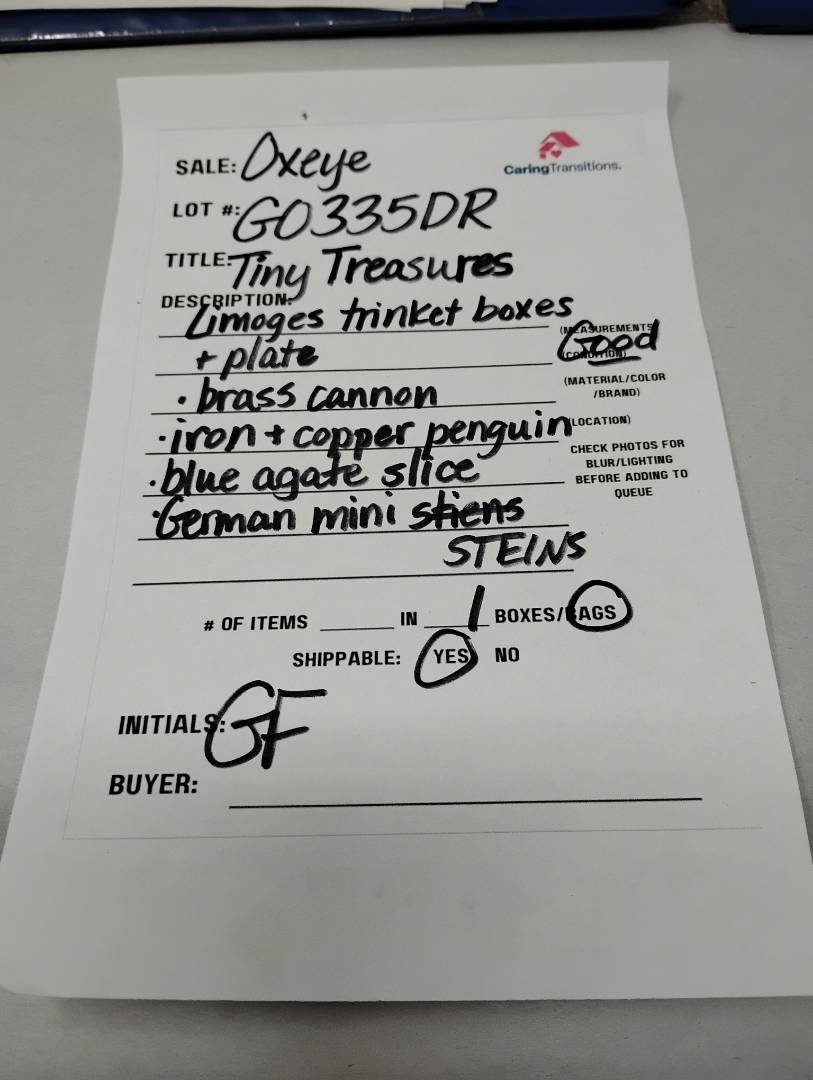 SALE: Oxeye
CaringTransitions.
LOT #: GO335DR
TITLE: Tiny Treasures
DESCRIPTION:
Limoges trinket boxes
(MEASUREMENTS
+ plate
Good
(CONDITION)
(MATERIAL/COLOR
/BRAND)
• brass cannon
• iron + copper penguin
(LOCATION)
• blue agate slice
CHECK PHOTOS FOR
BLUR/LIGHTING
BEFORE ADDING TO
QUEUE
• German mini stiens
STEINS
# OF ITEMS IN 1 BOXES/BAGS
SHIPPABLE: YES NO
INITIALS: GF
BUYER: